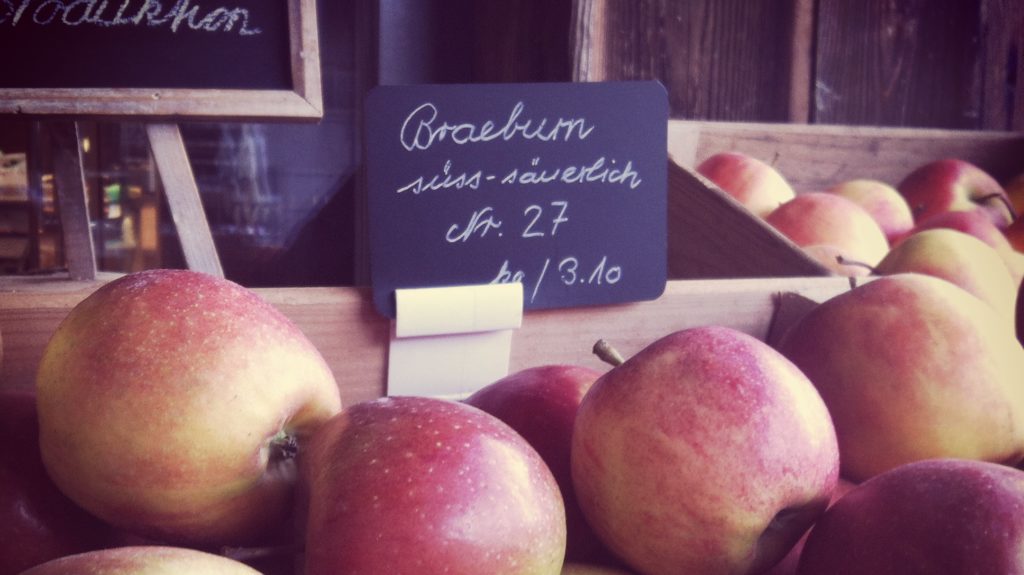 Produktion
Braeburn
süss-säuerlich
Nr. 27
kg / 3.10